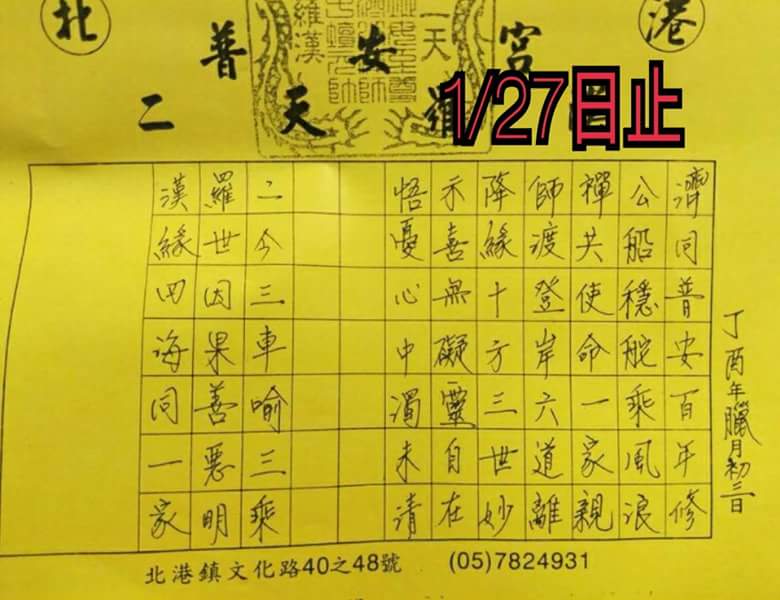 北 港
普 安 宮
二 天
1/27日止
丁酉年臘月初三日
濟同普安百年修
公船穩舵乘風浪
禪共使命一家親
師渡登岸六道離
降緣十方三世妙
示喜無礙靈自在
悟憂心中濁未清
二今三車喻三乘
羅世因果善惡明
漢緣四海同一家
北港鎮文化路40之48號 (05)7824931